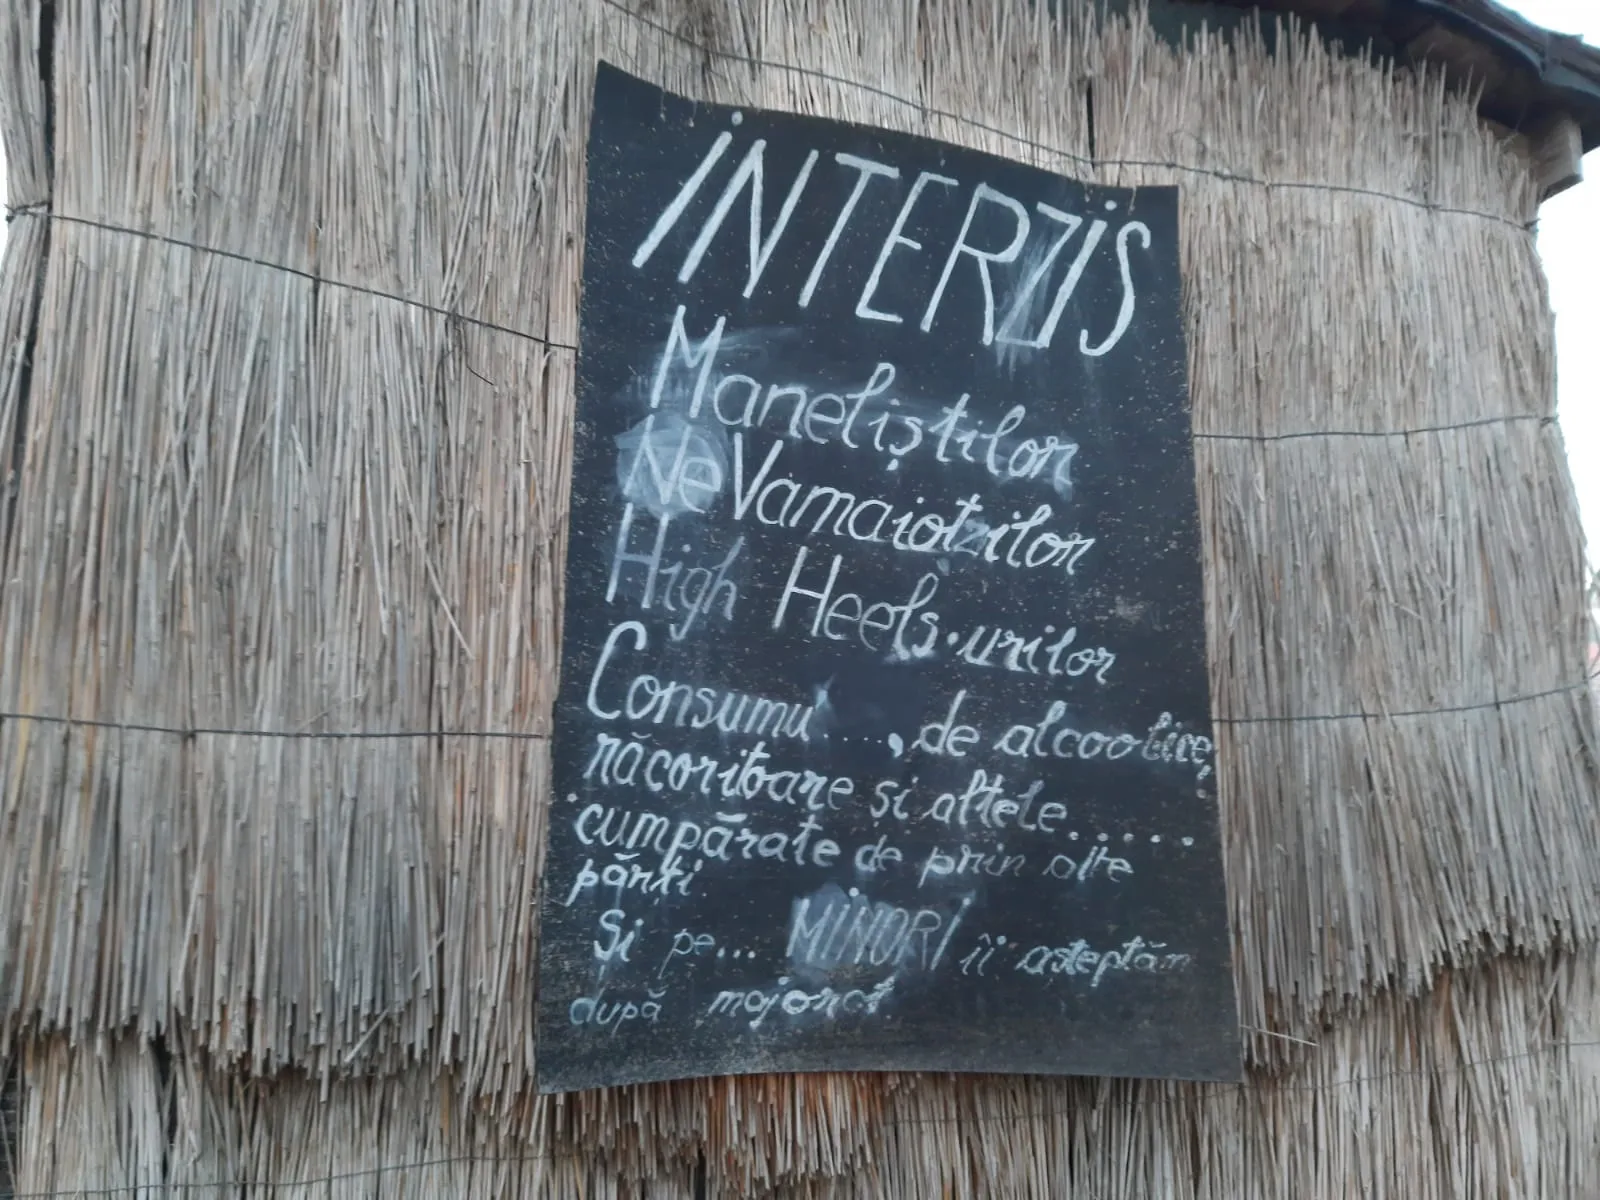 İNTERZİS
Maneliștilor
NeVamaioțzilor
High Heels-urilor
Consumu'...., de alcoolice,
răcoritoare și altele......
cumpărate de prin alte
părți.
Și pe... MİNORİ îi așteptăm
după majorat.